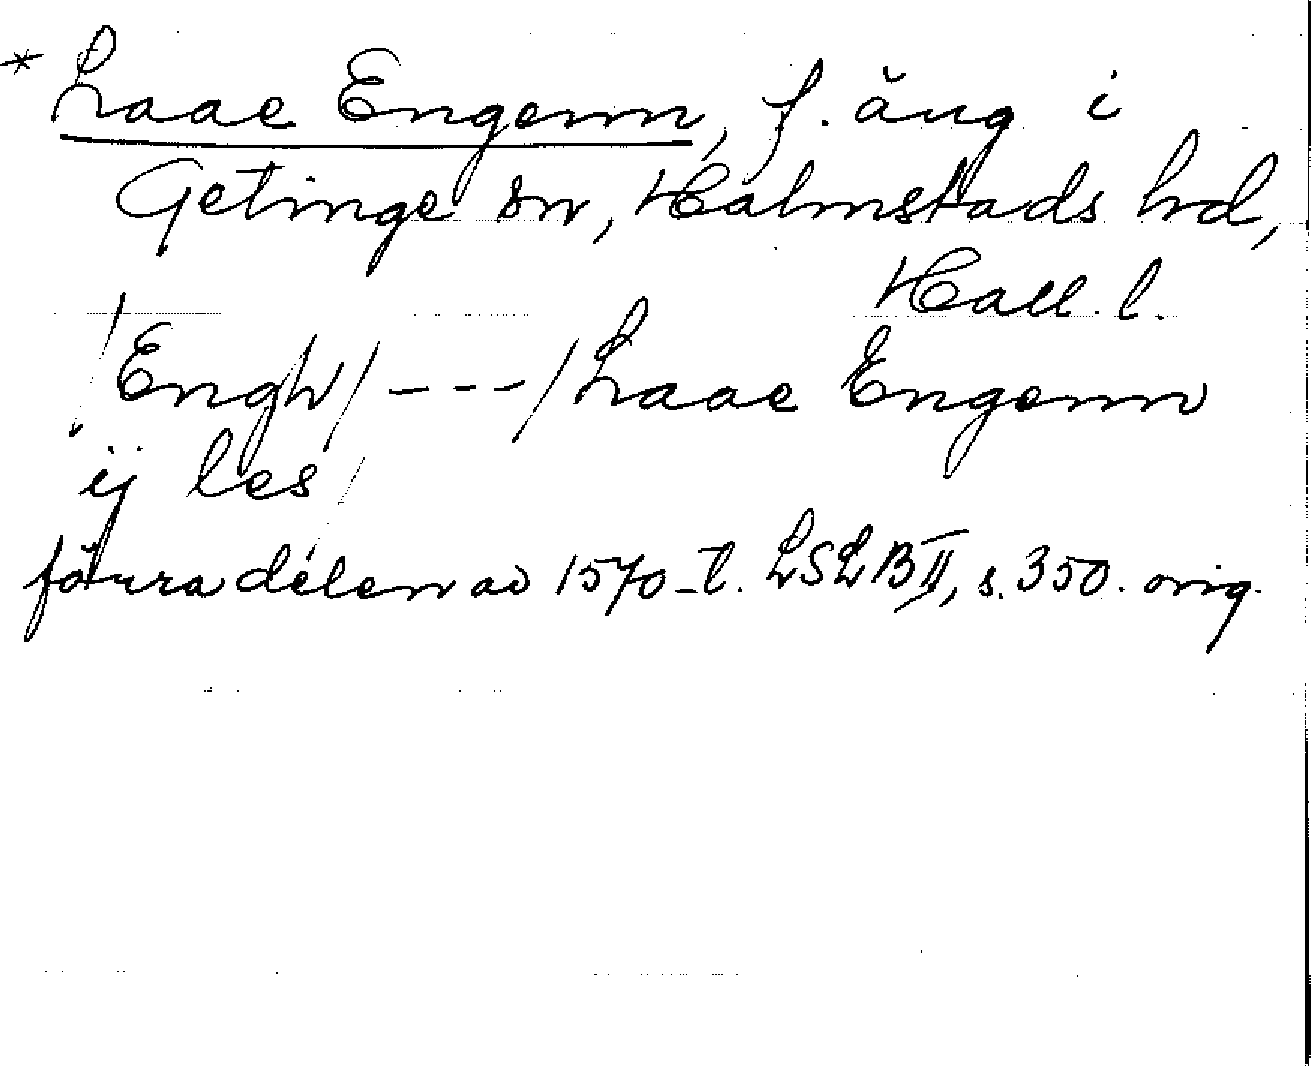 * Laae Engenn, f. äng i
Getinge sn, Halmstads hd,
Hall. l.
/Engh/ - - - /Laae Engenn
ij les/
förra delen av 1570-t. LSLB II, s. 350. orig.